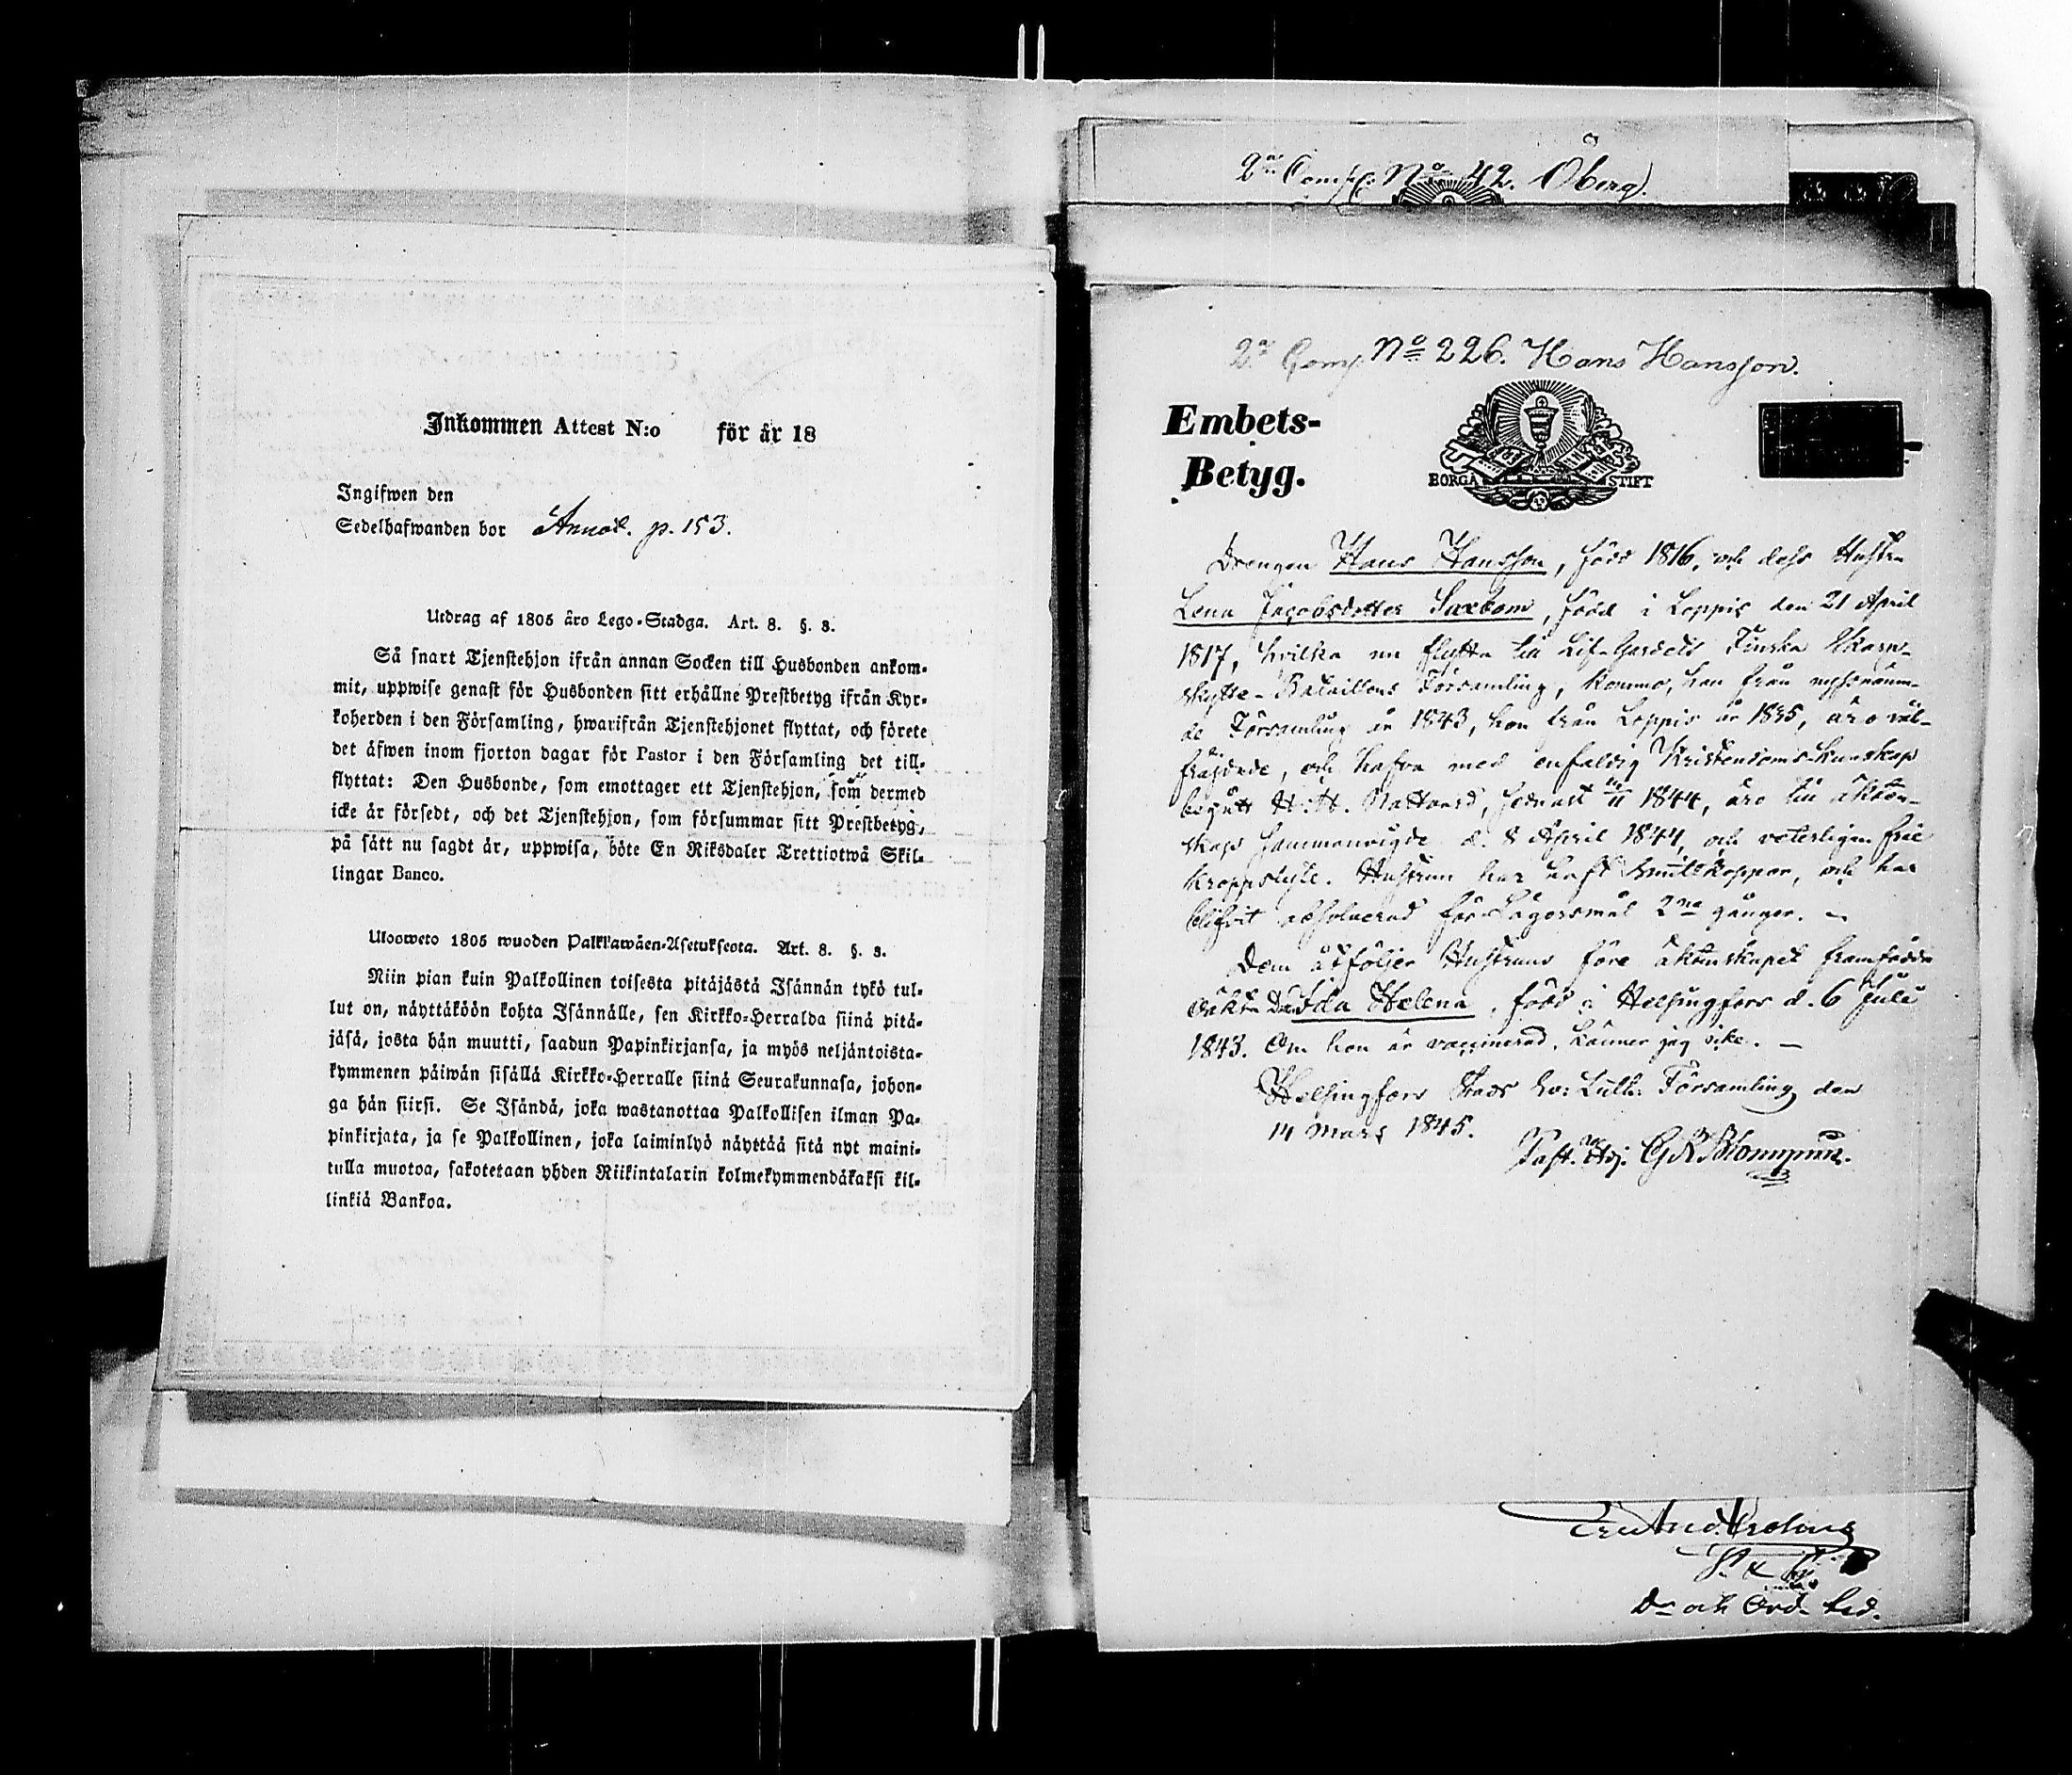 Inkommen Attest N:o för år 18
Ingifwen den
Sedelhafwanden bor Annot. p. 153.
Utdrag af 1805 års Lego-Stadga. Art. 8. §. 3.
Så snart Tjenstehjon ifrån annan Socken till Husbonden ankom-
mit, uppwise genast för Husbonden sitt erhållne Prestbetyg ifrån Kyr-
koherden i den Församling, hwarifrån Tjenstehjonet flyttat, och förete
det äfwen inom fjorton dagar för Pastor i den Församling det till-
flyttat: Den Husbonde, som emottager ett Tjenstehjon, som dermed
icke är försedt, och det Tjenstehjon, som försummar sitt Prestbetyg,
på sätt nu sagdt är, uppwisa, böte En Riksdaler Trettiotwå Skil-
lingar Banco.
Ulosweto 1805 wuoden Palkkawäen-Asetuksesta. Art. 8. §. 3.
Niin pian kuin Palkollinen toisesta pitäjästä Isännän tykö tul-
lut on, näyttäköön kohta Isännälle, sen Kirkko-Herralda siinä pitä-
jäsä, josta hän muutti, saadun Papinkirjansa, ja myös neljäntoista-
kymmenen päiwän sisällä Kirkko-Herralle siinä Seurakunnasa, johon-
ga hän siirsi. Se Isändä, joka wastanottaa Palkollisen ilman Pa-
pinkirjata, ja se Palkollinen, joka laiminlyö näyttää sitä nyt maini-
tulla muotoa, sakotetaan yhden Riikintalarin kolmekymmendäkaksi kil-
linkiä Bankoa.
2a Comp: No 42. Öberg.
2a Comp No 226. Hans Hansson.
Embets-
Betyg.
BORGÅ STIFT
Drengen Hans Hansson, född 1816, och dess Hustru
Lena Jacobsdotter Saxbom, född i Loppis den 21 April
1817, hvilka nu flytta till Lif-Gardets Finska Skarp-
skytte-Bataillons Församling, komne, han från nyssnämn-
de Församling år 1843, hon från Loppis år 1835, äro väl-
fräjdade, och hafva med enfaldig Kristendoms-kunskap
begått H. H. Nattvard, sednast 1844, äro till äkten-
skap sammanvigde d. 8 April 1844, och veterligen frie
kroppslyte. Hustrun har haft smittkoppor, och har
blifvit absolverad för Lägersmål 2ne gånger. –
Dem åtföljer Hustruns före äktenskapet framfödda
Oäkta Dr Ida Helena, född i Helsingfors d. 6 Juli
1843. Om hon är vaccinerad, känner jag icke. –
Helsingfors Stads Ev: Luth: Församling den
14 Mars 1845.
Past. Adj. G R Blomqvist.
Dr och Ord. Led.